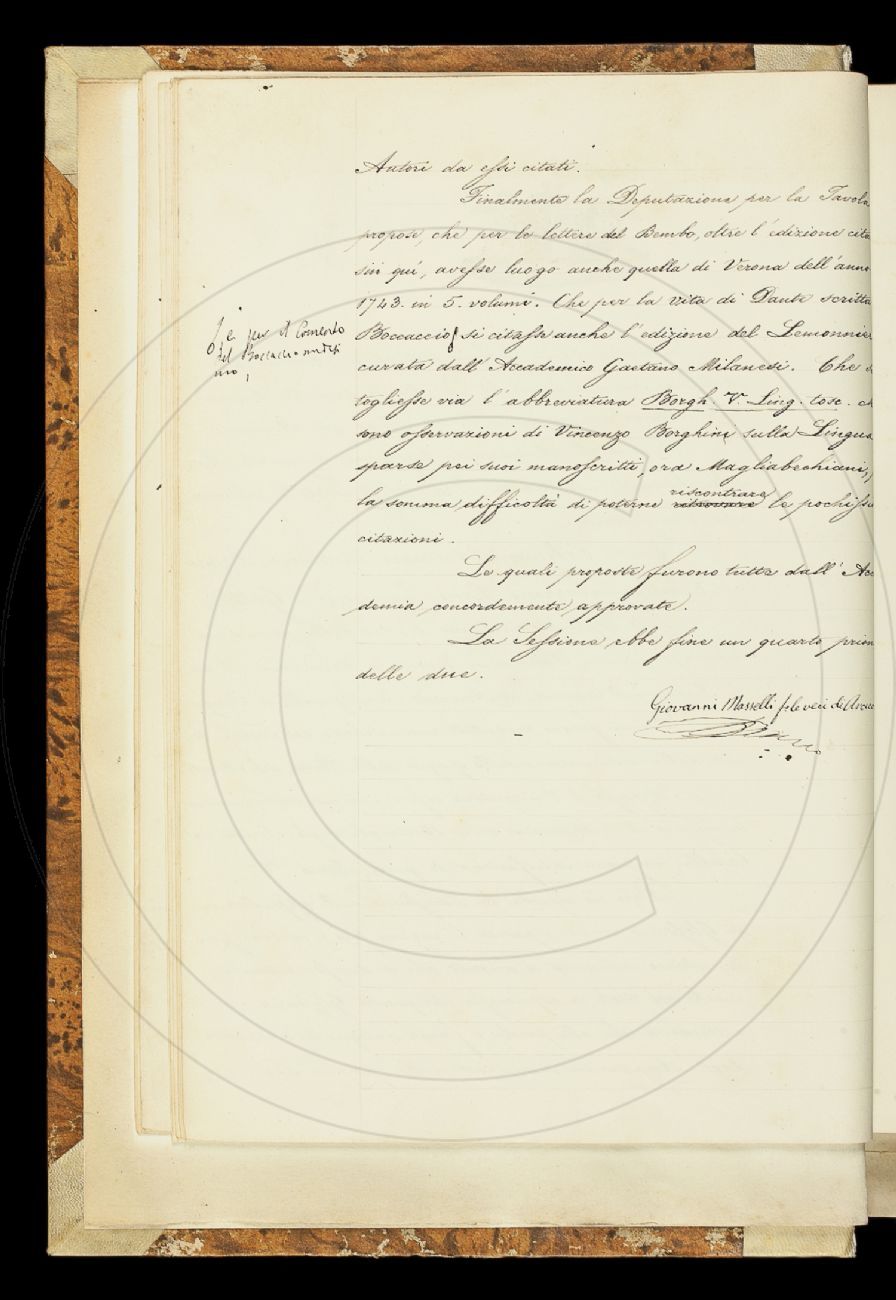 Autori da essi citati.
Finalmente la Deputazione per la Tavola
propose, che per le lettere del Bembo, oltre l'edizione cita
sin quì, avesse luogo anche quella di Verona dell'anno
1743. in 5. volumi. Che per la vita di Dante scritta
e per il Comento
del Boccaccio medesi
mo,
Boccaccio si citasse anche l'edizione del Lemonnier
curata dall'Accademico Gaetano Milanesi. Che s
togliesse via l'abbreviatura Borgh. V. Ling. tosc. ch
sono osservazioni di Vincenzo Borghini sulla Lingua
sparse pei suoi manoscritti, ora Magliabechiani,
riscontrare
la somma difficoltà di poterne ritrovare le pochiss
citazioni.
Le quali proposte furono tutte dall'Acc
demia concordemente approvate.
La Sessione ebbe fine un quarto prim
delle due.
Giovanni Masselli f. le veci di